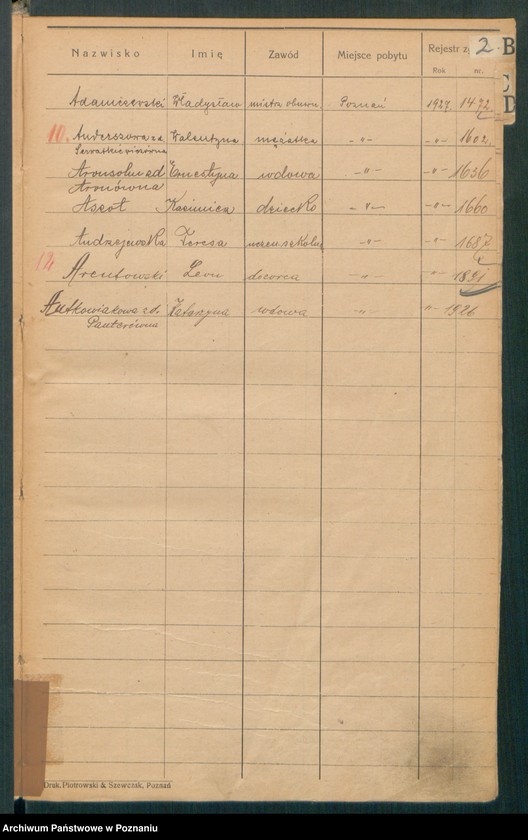 2
B
C
D
Nazwisko Imię Zawód Miejsce pobytu Rejestr
Rok nr.
Adamczewski Władysław mistrz obuwn. Poznań 1927 1472
10. Anderszowa z d. Walentyna mężatka -"- -"- 1602
Aronsohn z d. Ernestyna wdowa -"- -"- 1636
Aronówna
Ascot Kazimierz dziecko -"- -"- 1660
Andrzejewska Teresa uczen. szkoln. -"- -"- 1687
12 Arentowski Leon dozorca -"- -"- 1891
Antkowiakowa z d. Katarzyna wdowa -"- -"- 1926
Druk. Piotrowski & Szewczik, Poznań
Archiwum Państwowe w Poznaniu